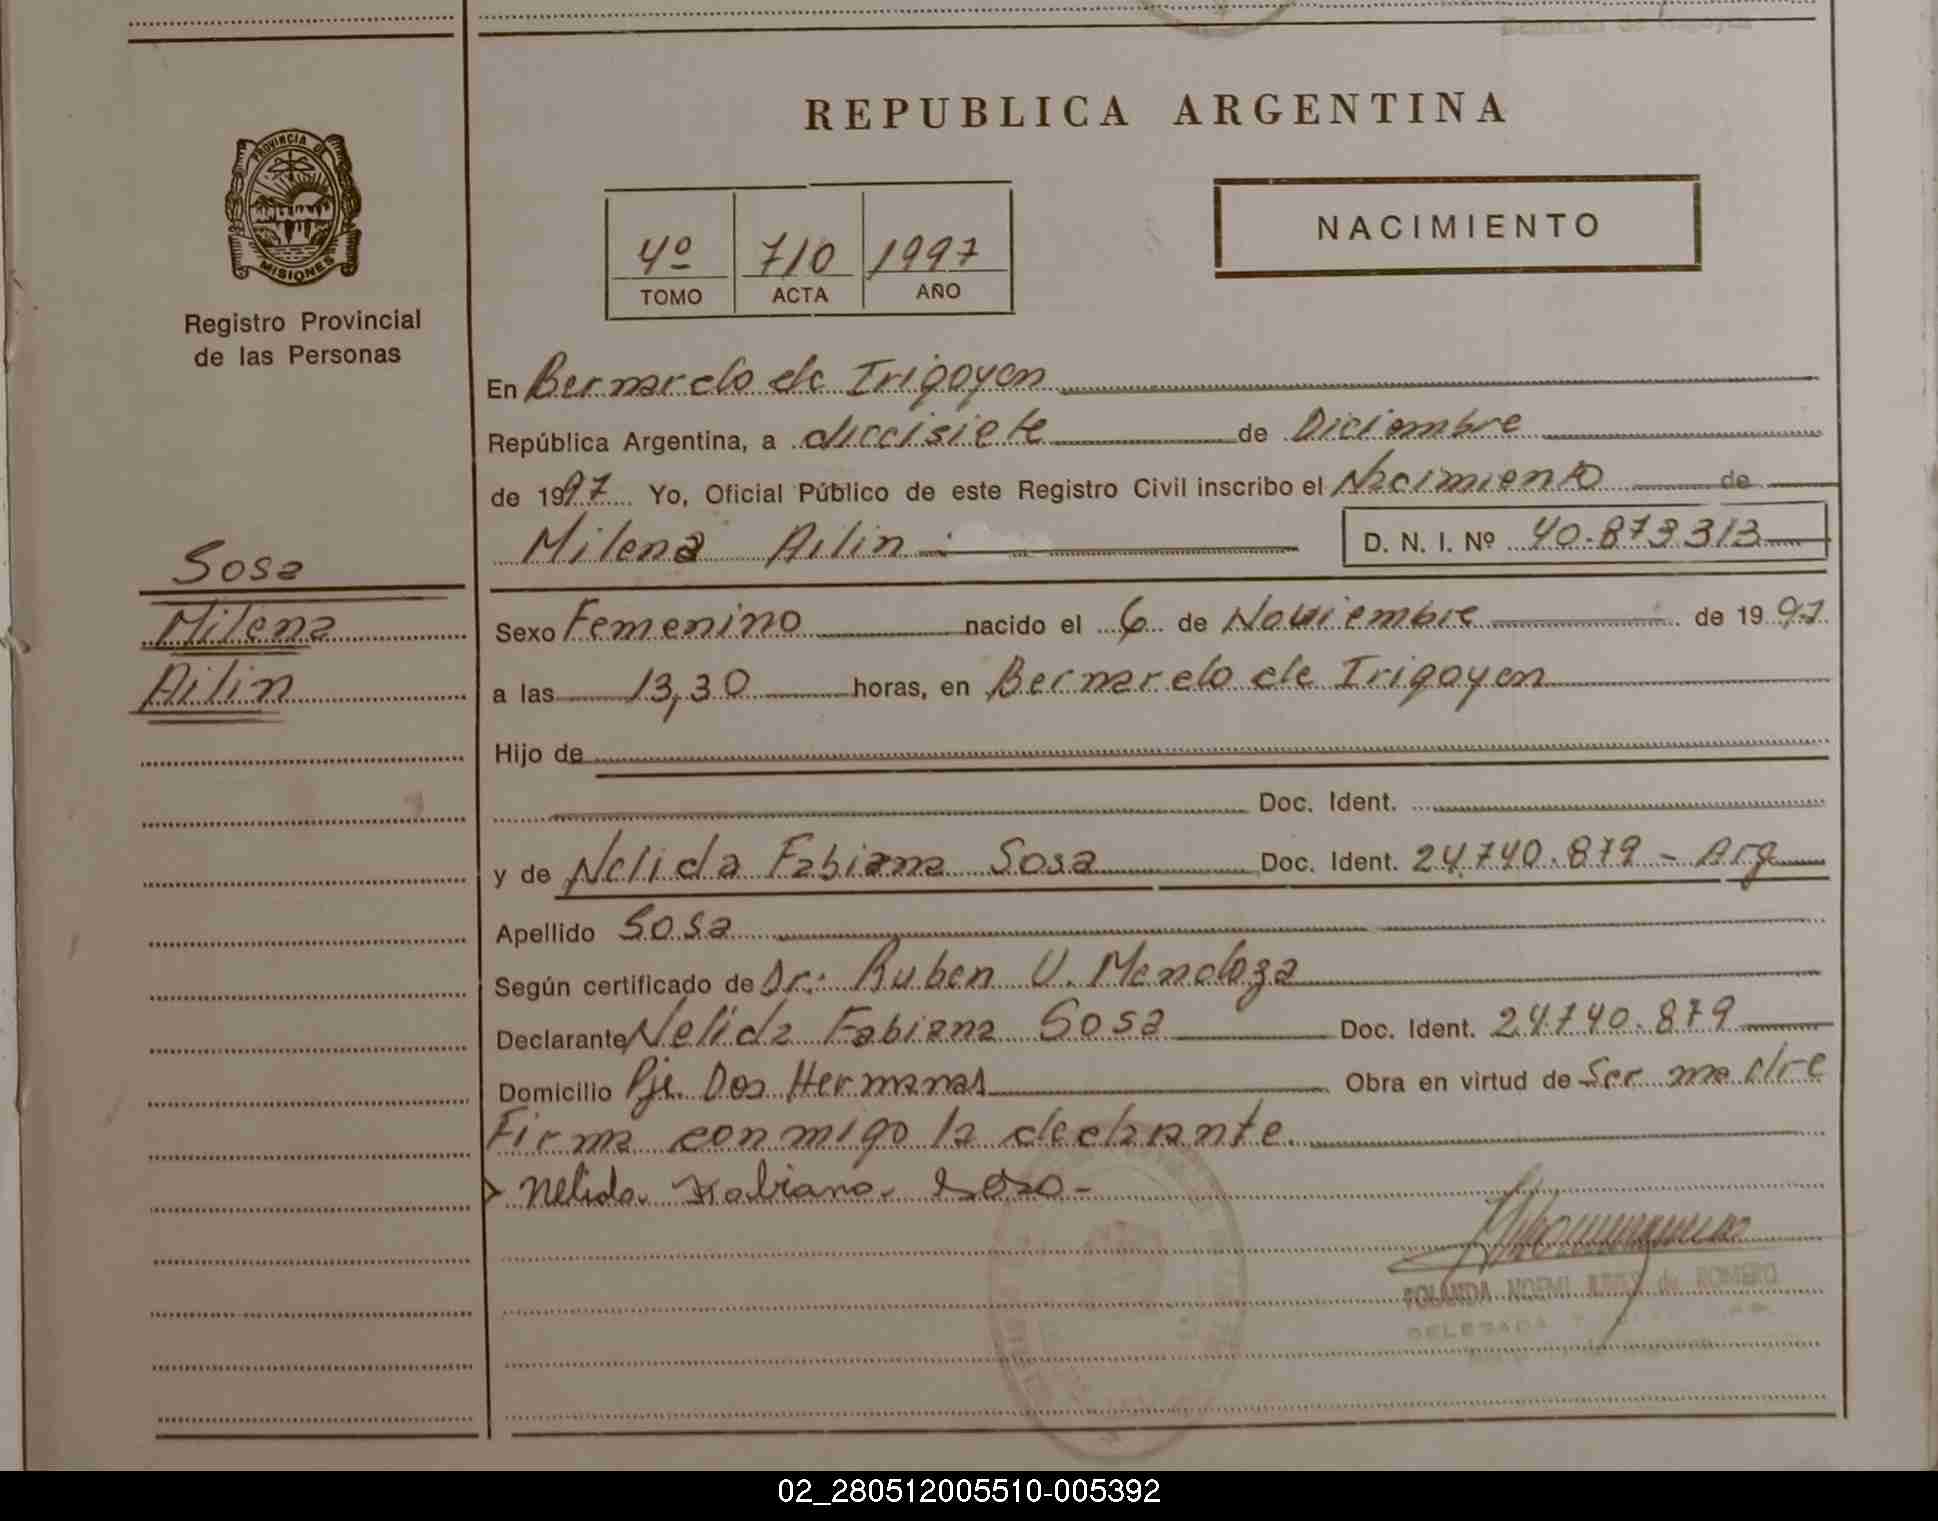 REPUBLICA ARGENTINA
PROVINCIA DE
MISIONES
Registro Provincial
de las Personas
NACIMIENTO
4º 710 1997
TOMO ACTA AÑO
En Bernardo de Irigoyen
República Argentina, a diecisiete de Diciembre
de 1997 Yo, Oficial Público de este Registro Civil inscribo el Nacimiento de
Milena Ailin D. N. I. Nº 40.873.313
Sosa
Milena
Ailin
Sexo Femenino nacido el 6 de Noviembre de 1997
a las 13,30 horas, en Bernardo de Irigoyen
Hijo de
Doc. Ident.
y de Nelida Fabiana Sosa Doc. Ident. 24.740.879 - Arg
Apellido Sosa
Según certificado de Dr: Ruben U. Mendoza
Declarante Nelida Fabiana Sosa Doc. Ident. 24.740.879
Domicilio Pje. Dos Hermanas Obra en virtud de Ser madre
Firma conmigo la declarante.
Nelida Fabiana Sosa -
YOLANDA NOEMI de ROMERO
DELEGADA
02_280512005510-005392